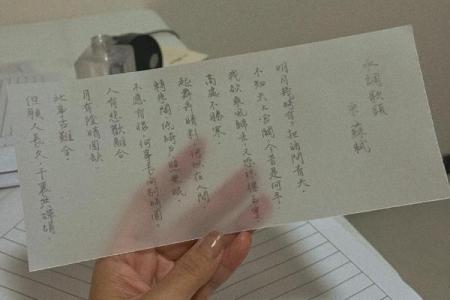 水調歌頭
宋 蘇軾
明月幾時有?把酒問青天,
不知天上宮闕,今昔是何年。
我欲乘風歸去,又恐瓊樓玉宇,
高處不勝寒。
起舞弄清影,何似在人間。
轉朱閣低綺戶照無眠,
不應有恨何事長向別時圓,
人有悲歡離合
月有陰晴圓缺
此事古難全,
但願人長久,千里共嬋娟